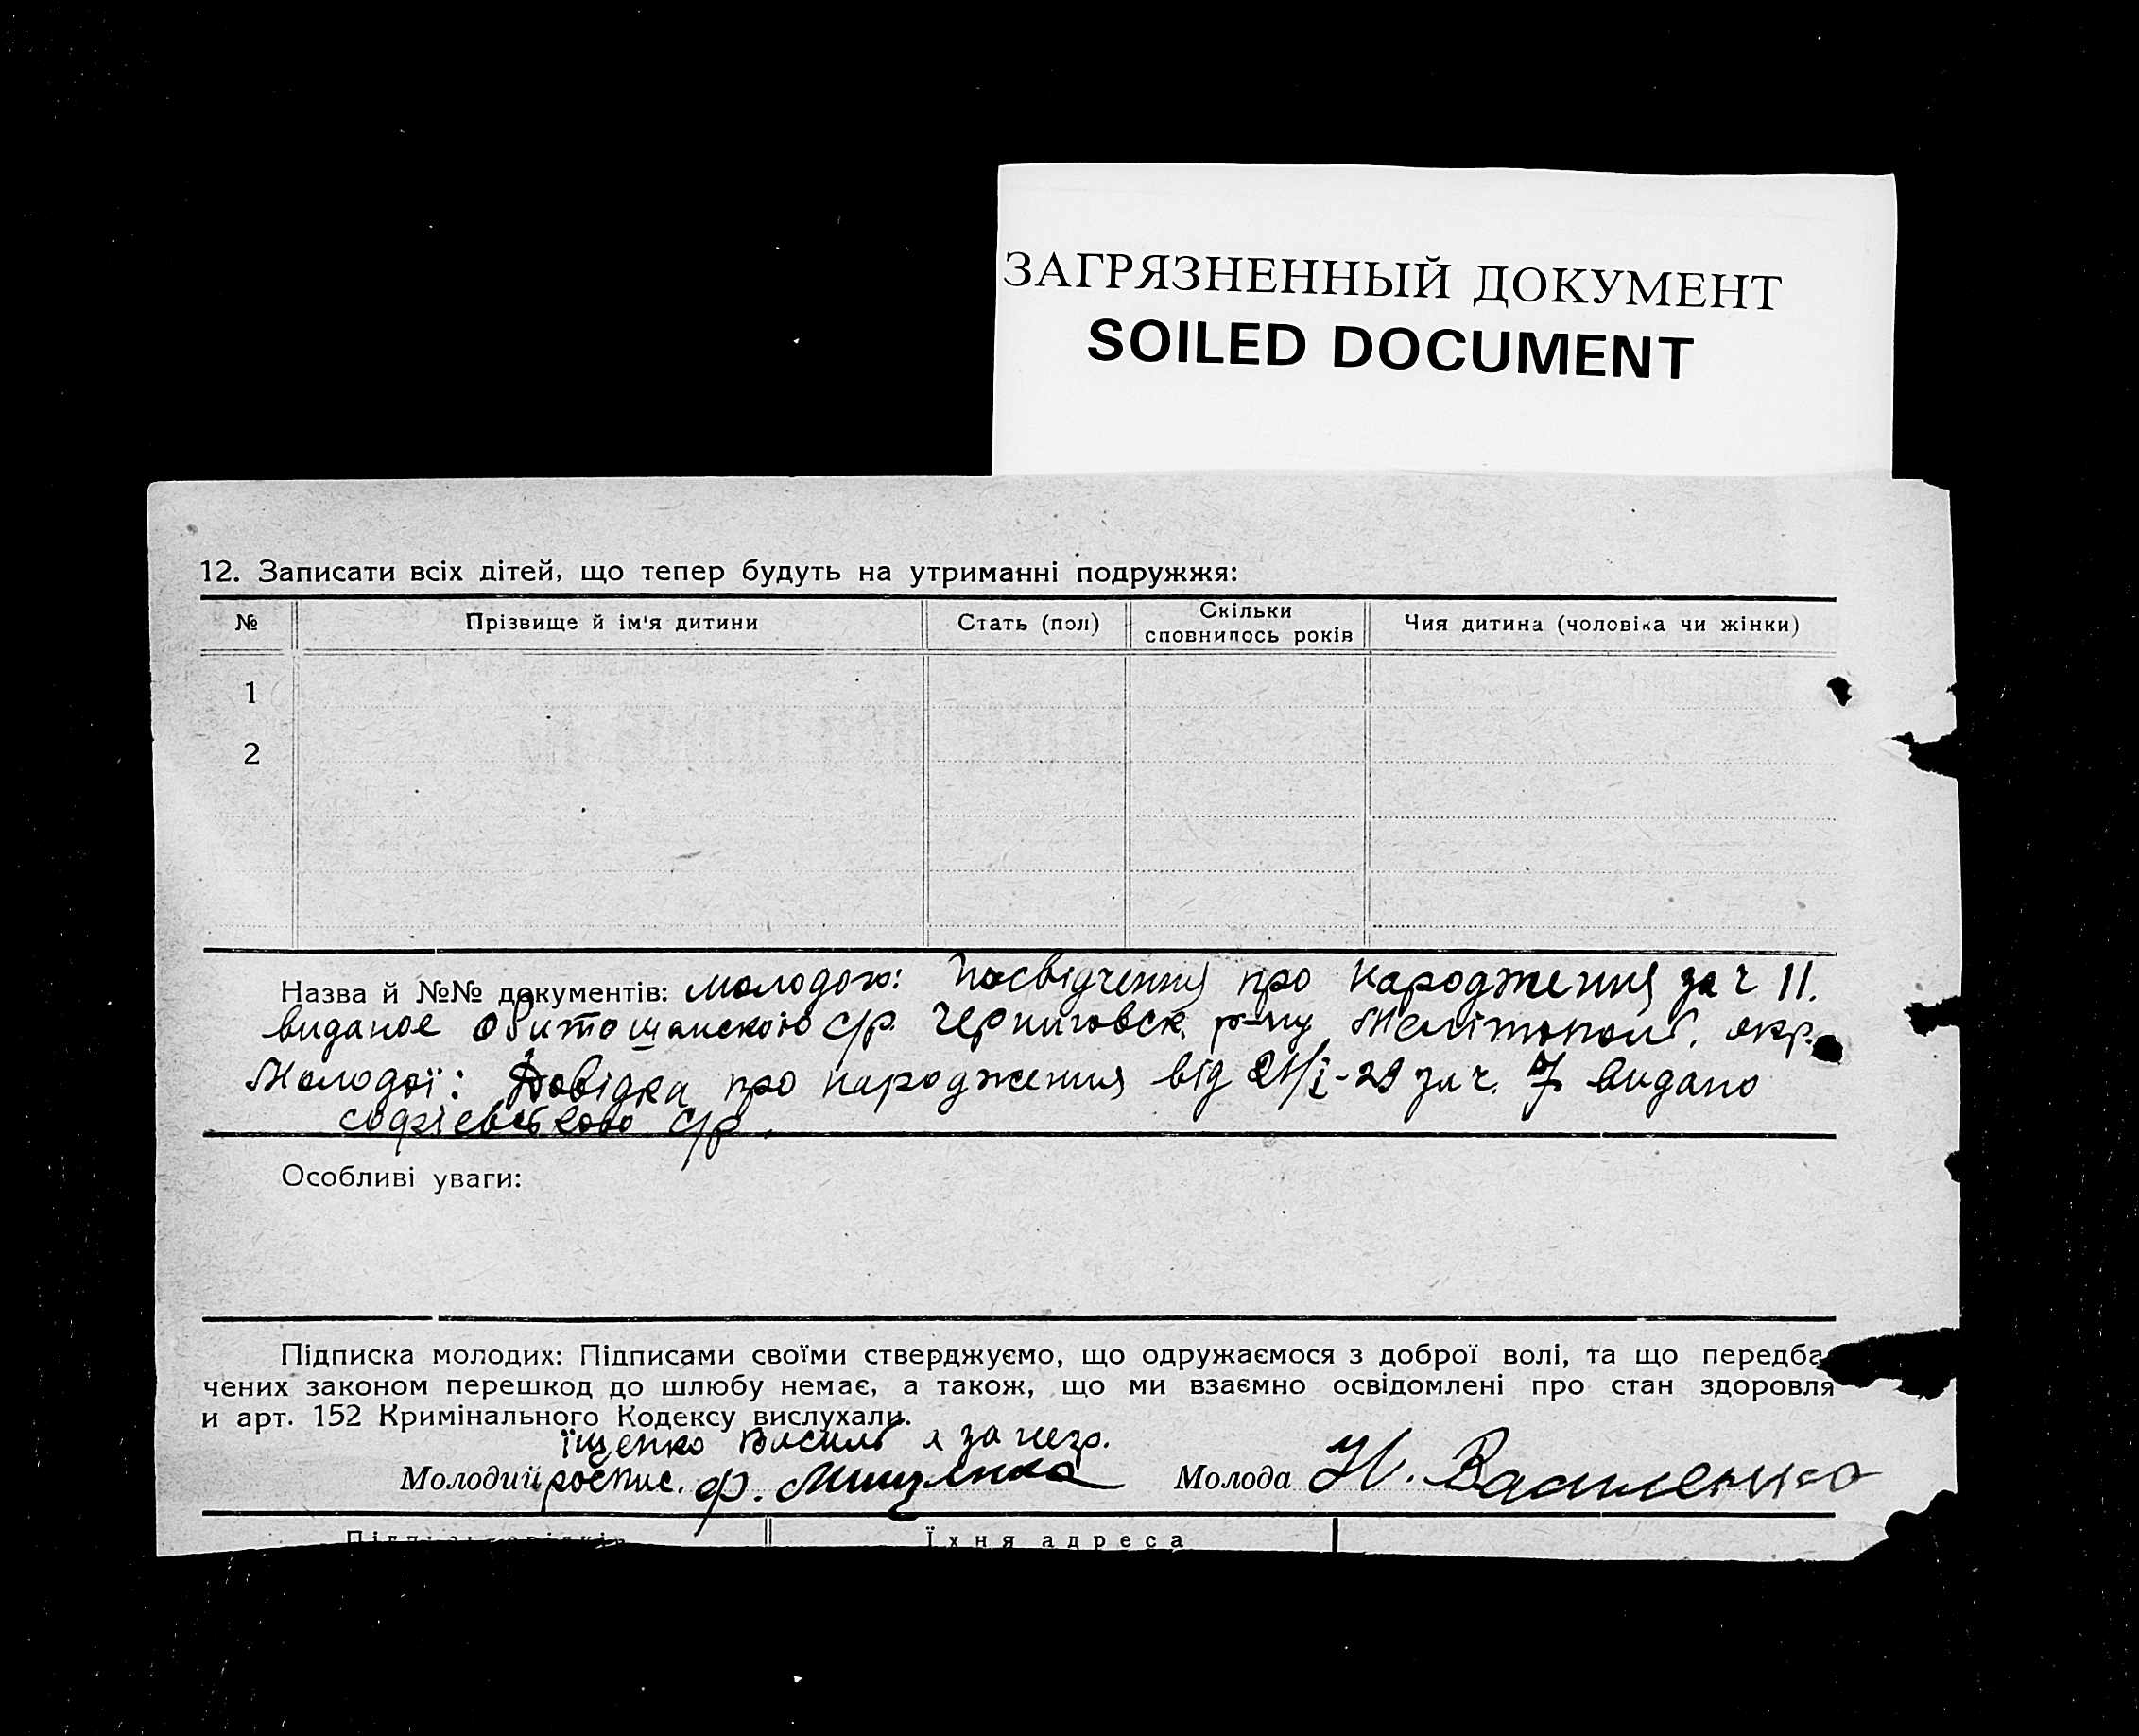 ЗАГРЯЗНЕННЫЙ ДОКУМЕНТ
SOILED DOCUMENT
12. Записати всіх дітей, що тепер будуть на утриманні подружжя:
№ Прізвище й ім'я дитини Стать (пол) Скільки сповнилось років Чия дитина (чоловіка чи жінки)
1
2
Назва й №№ документів: молодого: Посвідчення про народження за ч 11.
видане Обиточанскою с/р. Черниговск. р-ну Мелітополь. окр.
Молодої: Довідка про народження від 21/I-29 за ч. 7 видано
с/р.
Особливі уваги:
Підписка молодих: Підписами своїми стверджуємо, що одружаємося з доброї волі, та що передба-
чених законом перешкод до шлюбу немає, а також, що ми взаємно освідомлені про стан здоровля
и арт. 152 Кримінального Кодексу вислухали.
Іщенко Василь а за негр.
Молодий роспис. Ф. Мищенко Молода Н. Василенко
Їхня адреса